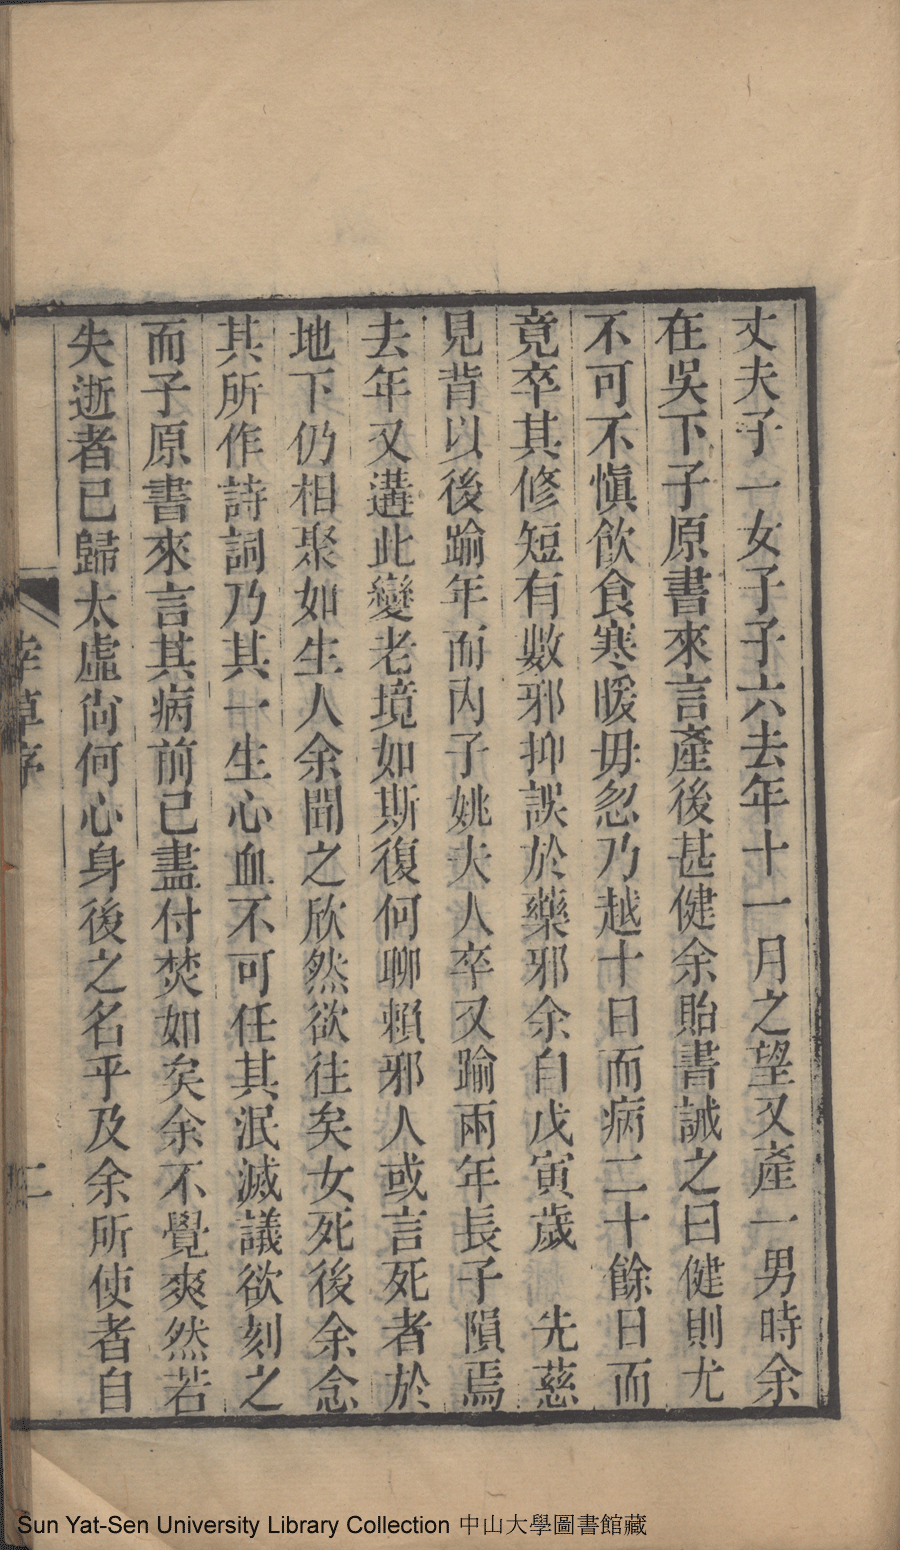 丈夫子一女子子六去年十一月之望又產一男時余
在吳下子原書來言產後甚健余貽書誡之曰健則尤
不可不慎飲食寒暖毋忽乃越十日而病二十餘日而
竟卒其修短有數邪抑誤於藥邪余自戊寅歲　先慈
見背以後踰年而內子姚夫人卒又踰兩年長子隕焉
去年又遘此變老境如斯復何聊賴邪人或言死者於
地下仍相聚如生人余聞之欣然欲往矣女死後余念
其所作詩詞乃其一生心血不可任其泯滅議欲刻之
而子原書來言其病前已盡付焚如矣余不覺爽然若
失逝者已歸太虛尙何心身後之名乎及余所使者自
草序
二
Sun Yat-Sen University Library Collection 中山大學圖書館藏